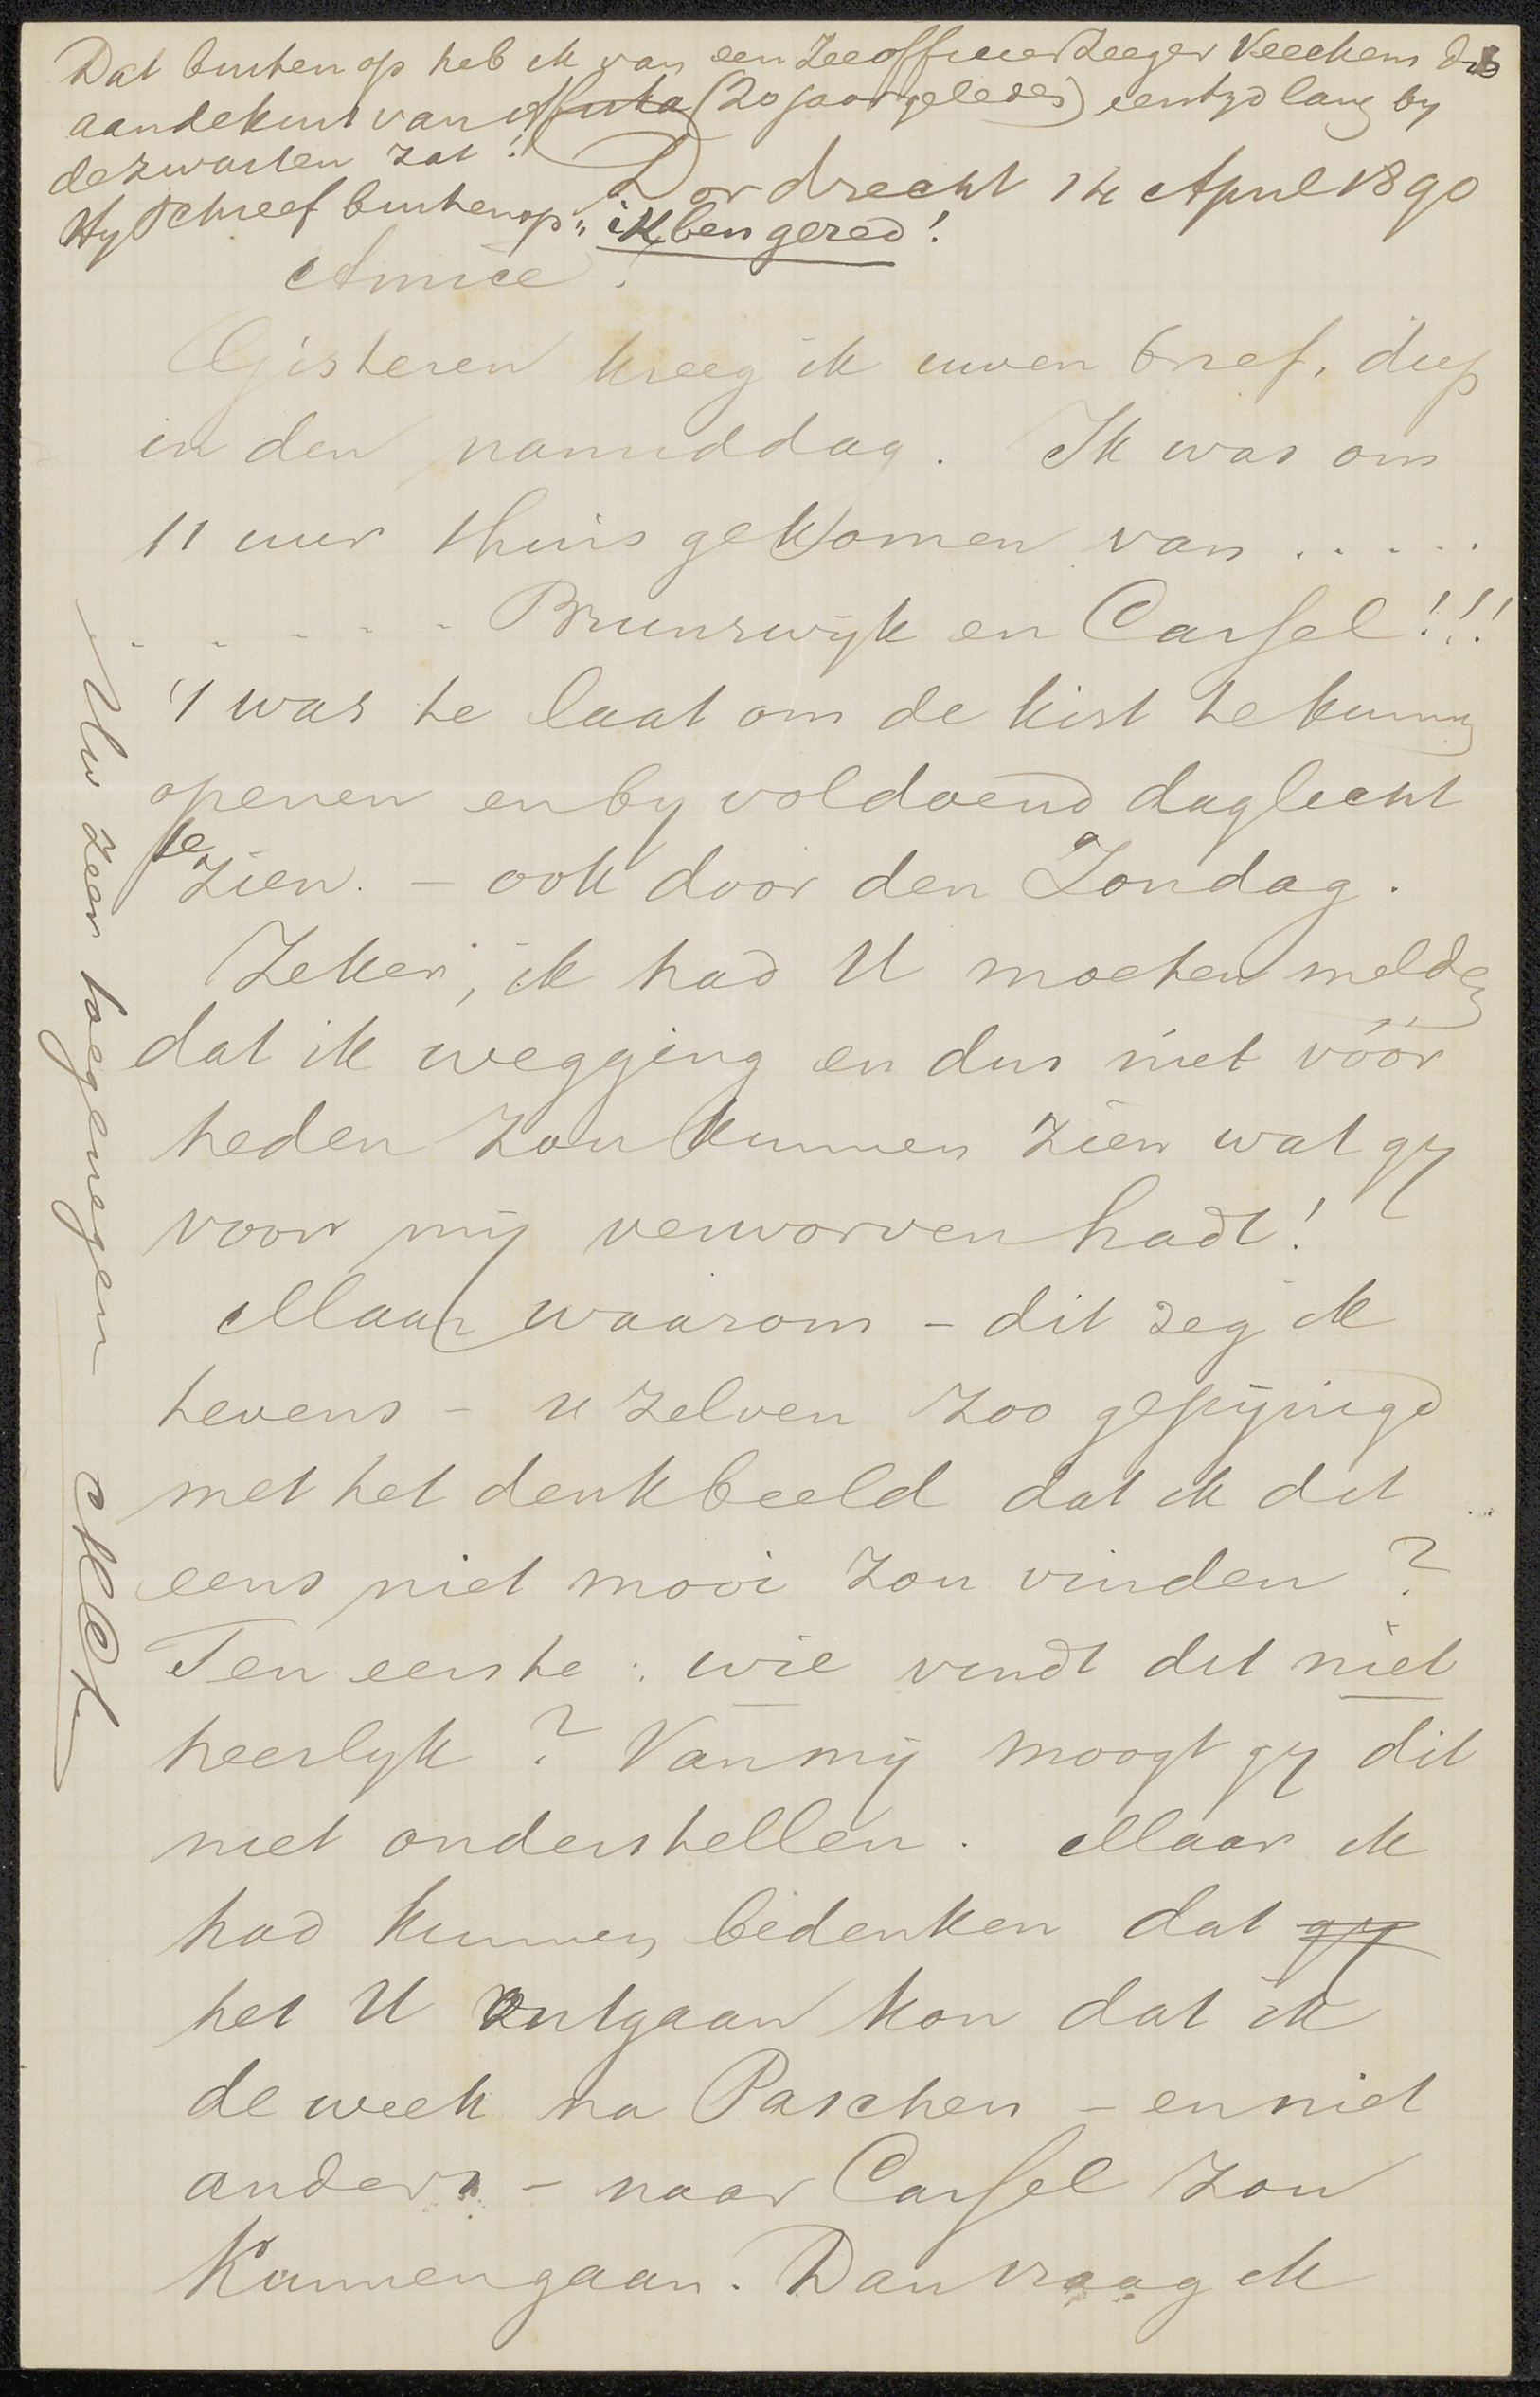 Dat buiten op heb ik van een Zeeofficier Zeeger Veeckens die
aan de kust van Afrika (20 jaar geleden) een tyd lang by
de zwarten zat!
Hy schreef buiten op: ik ben gered!
Dordrecht 14 April 1890
Amice!
Gisteren kreeg ik uwen brief, diep
in den namiddag. Ik was om
11 uur thuis gekomen van . . . . .
. . . . . . Brunswyk en Cassel!!!
't was te laat om de kist te kunnen
openen en by voldoend daglicht
te zien. – ook door den Zondag.
Zeker, ik had U moeten melden
dat ik wegging en dus niet vóór
heden zou kunnen zien wat gy
voor mij verworven hadt!
Maar waarom – dit zeg ik
tevens – u zelven zoo gepijnigd
met het denkbeeld dat ik dit
eens niet mooi zou vinden?
Ten eerste: wie vindt dit niet
heerlyk? Van mij moogt gy dit
niet onderstellen. Maar ik
had kunnen bedenken dat gy
het U ontgaan kon dat ik
de week na Paschen – en niet
anders – naar Cassel zou
kunnen gaan. Dan vraag ik
Uw zeer toegenegen